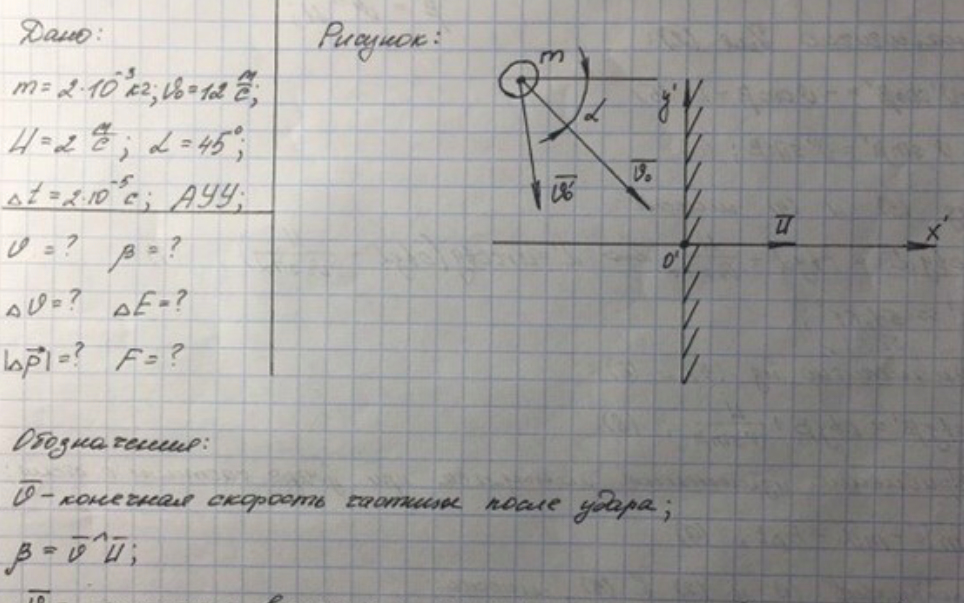 Дано:
m = 2·10⁻³ кг; υ₀ = 12 м/с;
U = 2 м/с; α = 45°;
Δt = 2·10⁻⁵ с; АУУ;
υ = ? β = ?
Δυ = ? ΔE = ?
|Δp⃗| = ? F = ?
Рисунок:
m
α
y'
υ̅₀
υ̅₀'
U̅
x'
O'
Обозначения:
υ̅ - конечная скорость частицы после удара;
β = υ̅ ^ U̅;